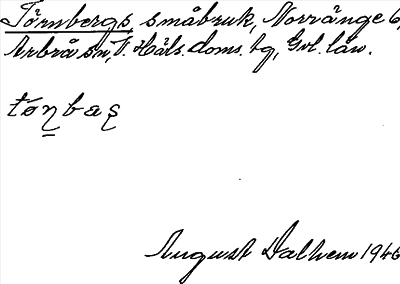 Törnbergs, småbruk, Norränge 6,
Arbrå sn, V. Häls. doms. tg, Gvl. län.
tǿn̠bas̨
August Dalhem 1946